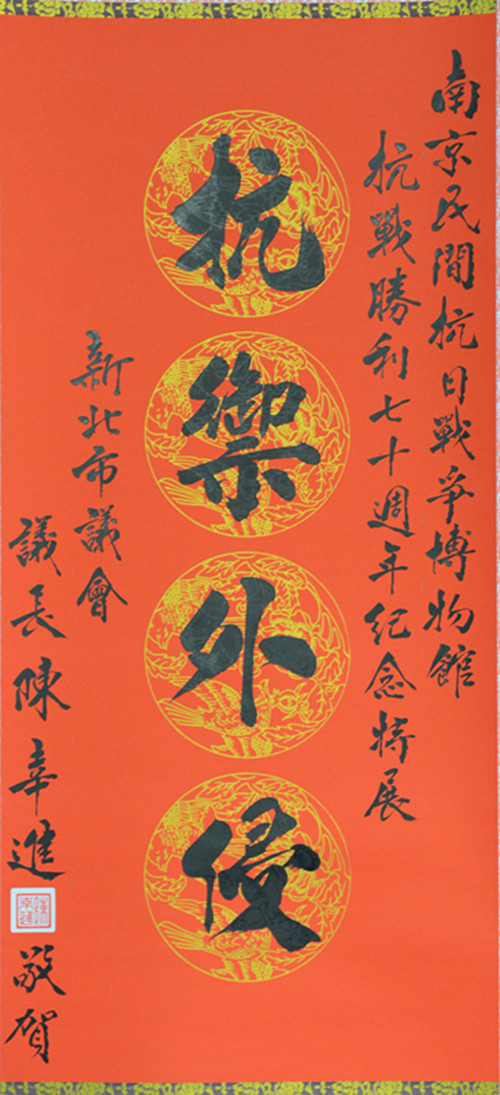 南京民間抗日戰爭博物館
抗戰勝利七十週年紀念特展
抗禦外侵
新北市議會
議長陳幸進敬賀